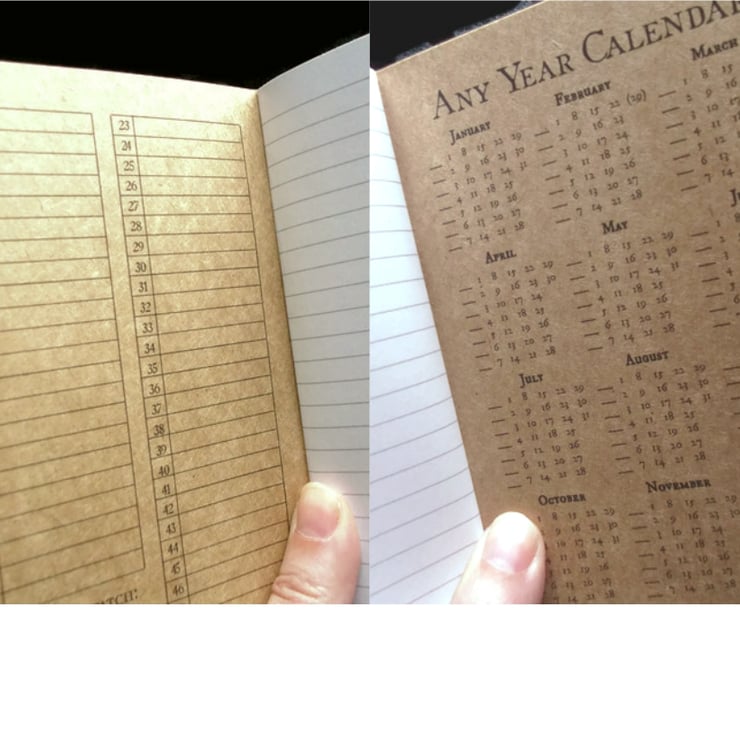 23
24
25
26
27
28
29
30
31
32
33
34
35
36
37
38
39
40
41
42
43
44
45
46
ANY YEAR CALENDAR
JANUARY
1 8 15 22 29
2 9 16 23 30
3 10 17 24 31
4 11 18 25
5 12 19 26
6 13 20 27
7 14 21 28
FEBRUARY
1 8 15 22 (29)
2 9 16 23
3 10 17 24
4 11 18 25
5 12 19 26
6 13 20 27
7 14 21 28
MARCH
1 8 15
2 9 16
3 10 17
4 11
5 12
6 13
7 14
APRIL
1 8 15 22 29
2 9 16 23 30
3 10 17 24
4 11 18 25
5 12 19 26
6 13 20 27
7 14 21 28
MAY
1 8 15 22 29
2 9 16 23 30
3 10 17 24 31
4 11 18 25
5 12 19 26
6 13 20 27
7 14 21 28
JULY
1 8 15 22 29
2 9 16 23 30
3 10 17 24 31
4 11 18 25
5 12 19 26
6 13 20 27
7 14 21 28
AUGUST
1 8 15 22 29
2 9 16 23 30
3 10 17 24 31
4 11 18 25
5 12 19 26
6 13 20 27
7 14 21 28
OCTOBER
8 15 22 29
9 16 23 30
10 17 24 31
11 18 25
12 19 26
13 20 27
7 14 21 28
NOVEMBER
1 8 15 22 29
2 9 16 23 30
3 10 17 24
4 11 18 25
5 12 19 26
6 13 20 27
7 14 21 28